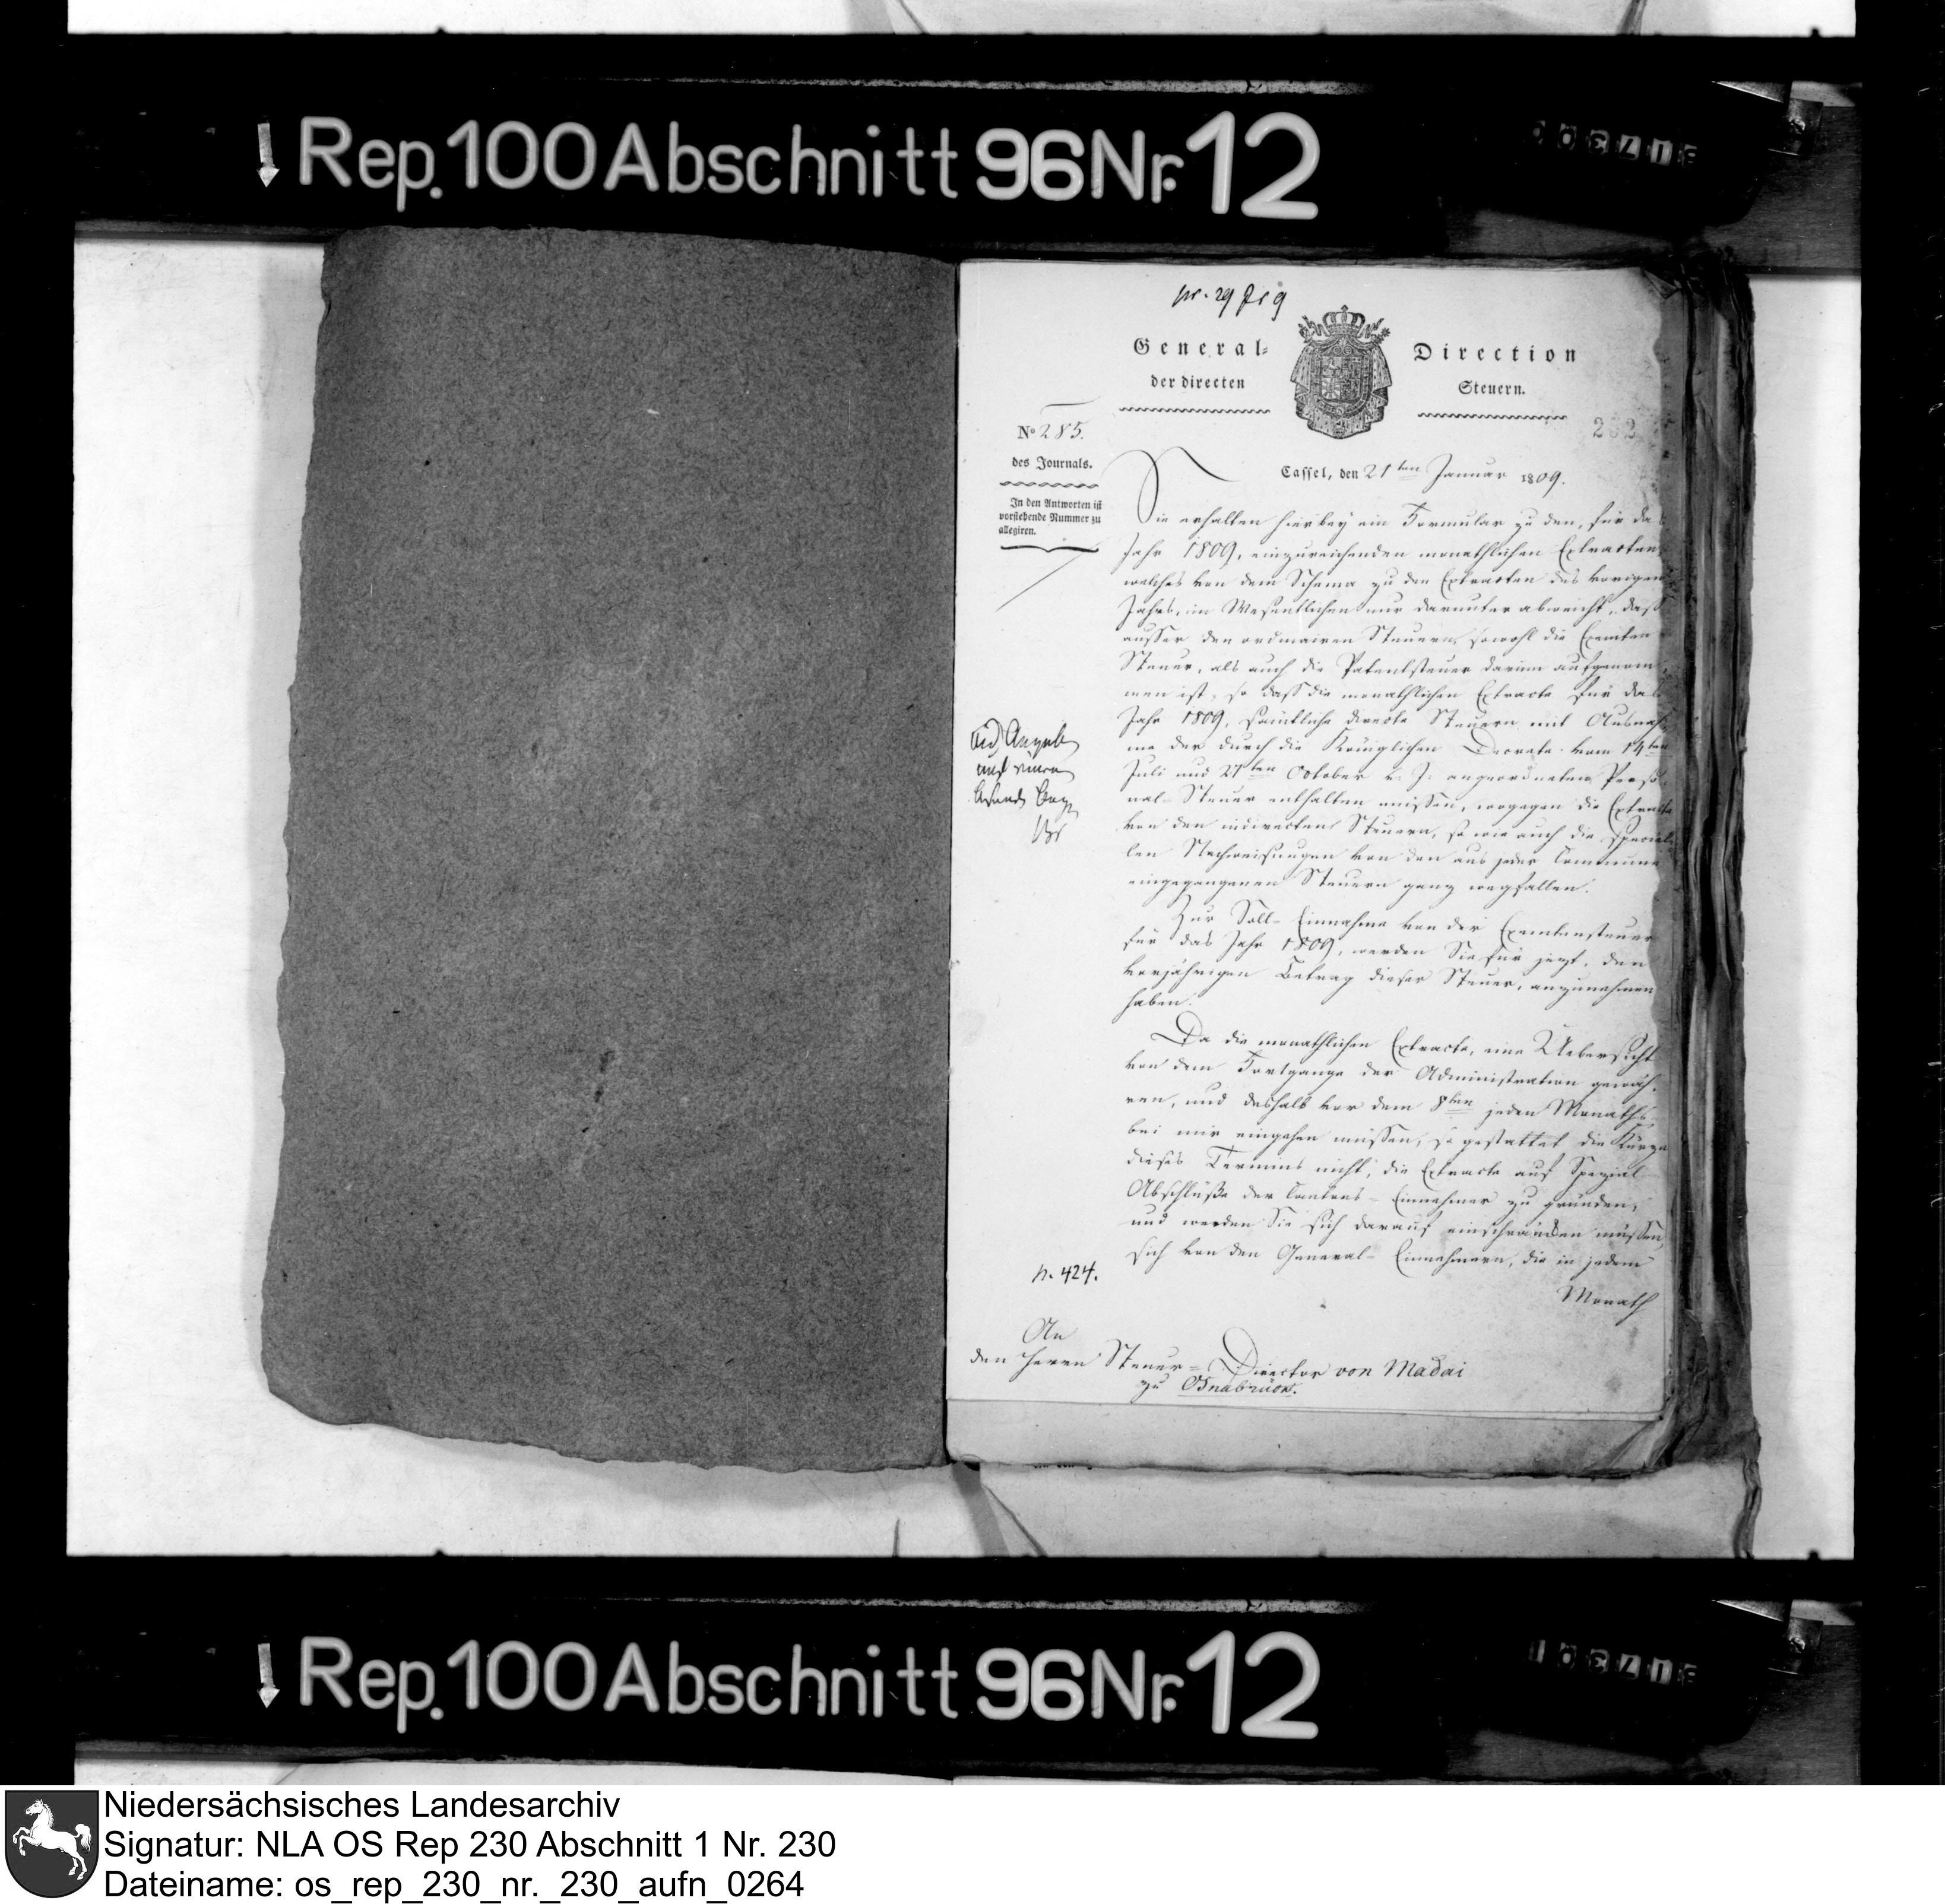 Rep. 100 Abschnitt 96 Nr. 12
General- Direction
der directen Steuern.
No 285.
des Journals.
In den Antworten ist
vorstehende Nummer zu
allegiren.
Cassel, den 21ten Januar 1809.
Sie erhalten hierbey ein Formular zu den, für das
Jahr 1809, einzureichenden monathlichen Extracten,
welches von dem Schema zu den Extracten des vorigen
Jahrs, im Wesentlichen nur darunter abweicht, daß
ausser den ordinairen Steuern, sowohl die Exemten
Steuer, als auch die Patentsteuer darinn aufgenom
men ist, so daß die monathlichen Extracte für das
Jahr 1809, sämtliche directe Steuern mit Ausnah
me der durch die Königlichen Decrete vom 14ten
Juli und 27ten October v. J. angeordneten Perso
nal- Steuer enthalten müssen, wogegen die Extracte
von den indirecten Steuern, so wie auch die speciel
len Nachweisungen von den aus jeder Commune
eingegangenen Steuern ganz wegfallen.
Zur Soll- Einnahme von der Exemtensteuer
für das Jahr 1809, werden Sie für jezt, den
vorjährigen Betrag dieser Steuer, anzunehmen
haben.
Da die monathlichen Extracte, eine Uebersicht
von dem Fortgange der Administration gewäh
ren, und deshalb vor dem 8ten jeden Monaths
bei mir eingehen müssen, so gestattet die Kürze
dieses Termins nicht, die Extracte auf Spezial
Abschlüße der Cantons- Einnehmer zu gründen,
und werden Sie sich darauf einschränken müssen,
sich von den General- Einnehmern, die in jedem
Monath
n. 424.
An
den Herrn Steuer- Director von Madai
zu Osnabrück.
Rep. 100 Abschnitt 96 Nr. 12
Niedersächsisches Landesarchiv
Signatur: NLA OS Rep 230 Abschnitt 1 Nr. 230
Dateiname: os_rep_230_nr._230_aufn_0264